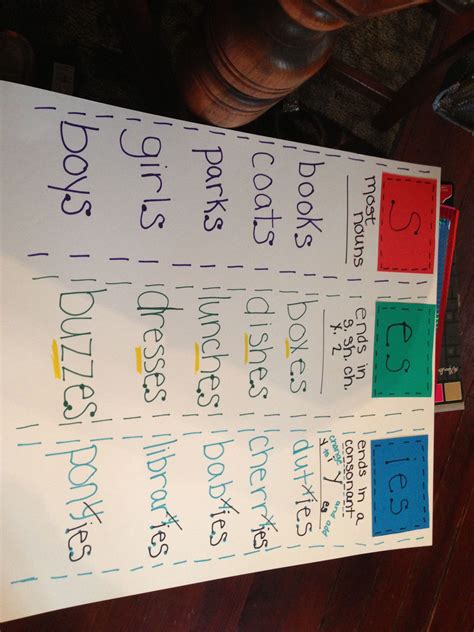 S
most
nouns
books
coats
parks
girls
boys
es
ends in
s, sh, ch,
x, z
boxes
dishes
lunches
dresses
buzzes
ies
ends in a
consonant
y
change
and add
es
duties
cherries
babies
libraries
ponies